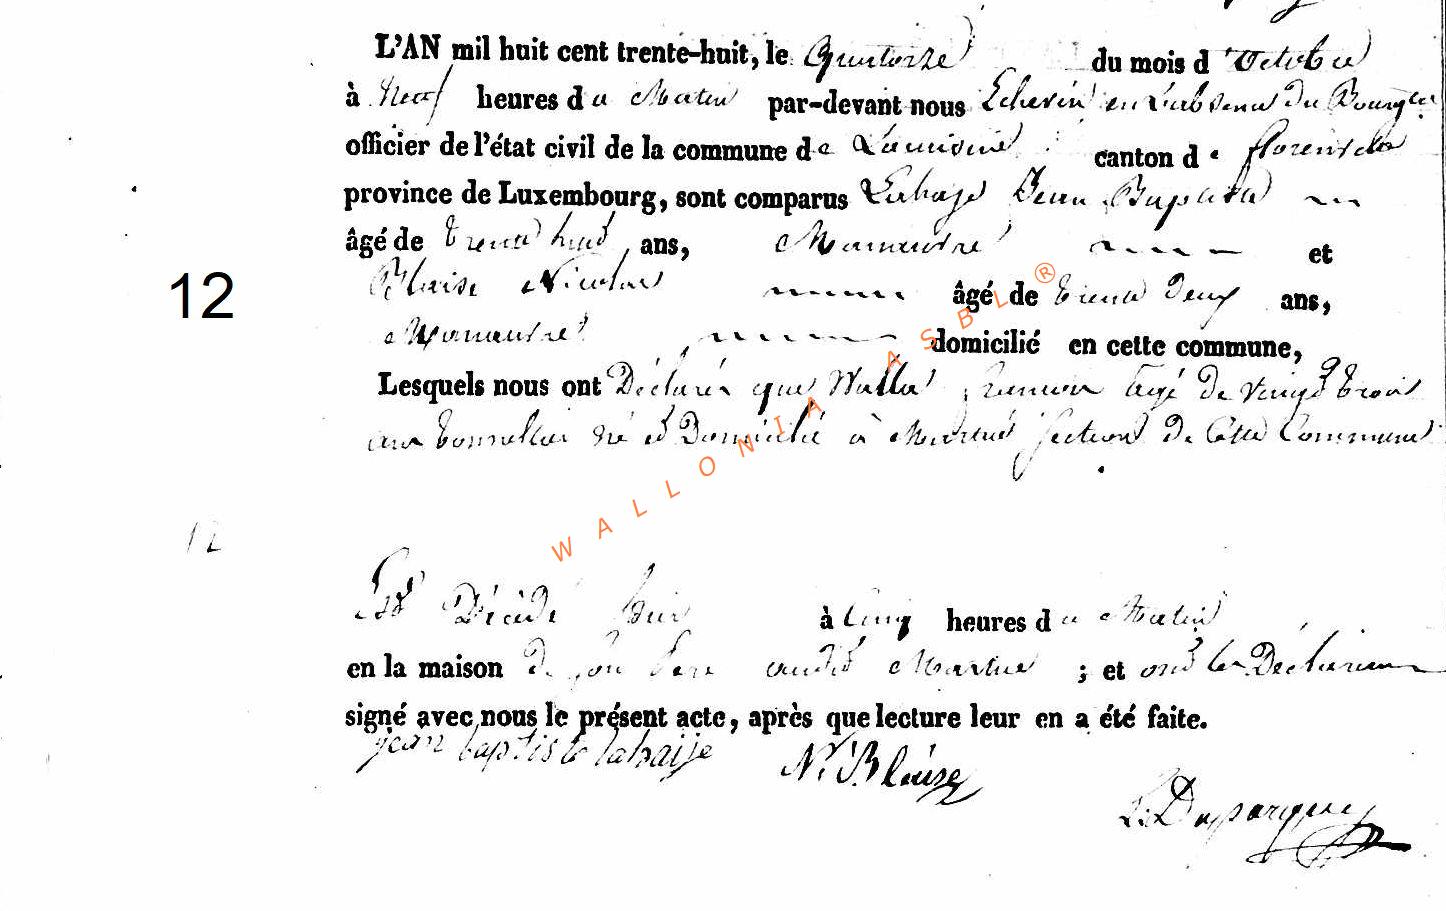 L'AN mil huit cent trente-huit, le Quatorze du mois d'Octobre
à Neuf heures du Matin par-devant nous Echevin en L'absence du Bourgm.
officier de l'état civil de la commune de Lacuisine canton de florenville
province de Luxembourg, sont comparus Lahaye Jean Baptiste
âgé de trente huit ans, Manœuvre et
12 Blaise Nicolas âgé de trente Deux ans,
Manœuvre domicilié en cette commune,
Lesquels nous ont Déclarés que agé de vingt trois
ans tonnellier né et Domicilié à Martué section de Cette Commune
12
Est Décédé hier à Cinq heures du Matin
en la maison de son Pere audit Martué ; et ont les Déclarans
signé avec nous le présent acte, après que lecture leur en a été faite.
jean baptiste lahaije N. Blaise
WALLONIA ASBL ®